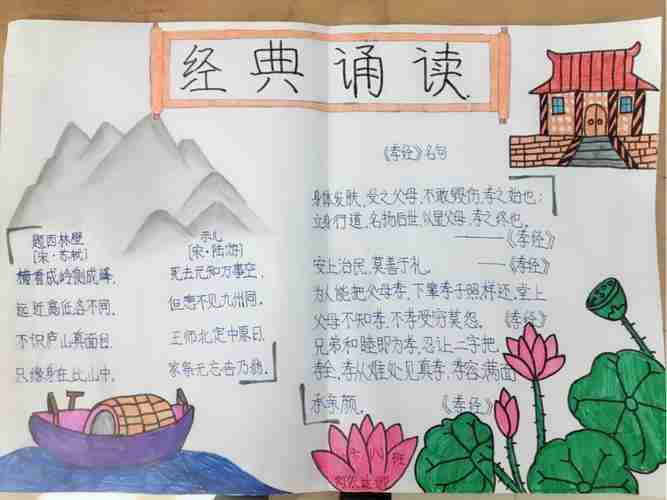 经典诵读
题西林壁
[宋·苏轼]
横看成岭侧成峰,
远近高低各不同,
不识庐山真面目
只缘身在此山中,
示儿
[宋·陆游]
死去元知万事空,
但悲不见九州同,
王师北定中原日
家祭无忘告乃翁,
《孝经》名句
身体发肤,受之父母,不敢毁伤,孝之始也;
立身行道,名扬后世,以显父母,孝之终也,
——《孝经》
安上治民,莫善于礼。 ——《孝经》
为人能把父母孝,下辈孝子照样还,堂上
父母不知孝,不孝受穷莫怨。《孝经》
兄弟和睦即为孝,忍让二字把
孝全,孝从难处见真孝,孝容满面
承亲颜。 《孝经》
八班